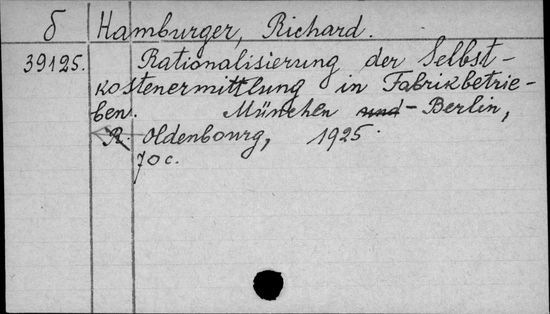 б Hamburger, Richard.
39125. Rationalisierung der Selbst-
kostenermittlung in Fabrikbetrie-
ben. München und - Berlin,
R. Oldenbourg, 1925.
70 c.